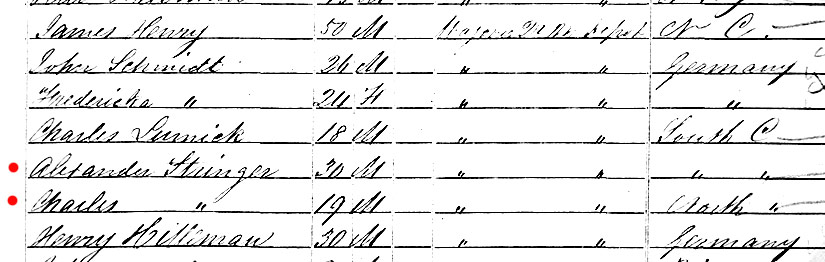 James Henry 50 M Depot N C.
John Schmidt 26 M " " Germany
Fredericka " 24 F " " "
Charles 18 M " " South C
Alexander Stringer 30 M " " " "
Charles " 19 M " " North "
Henry Hilleman 30 M " " Germany